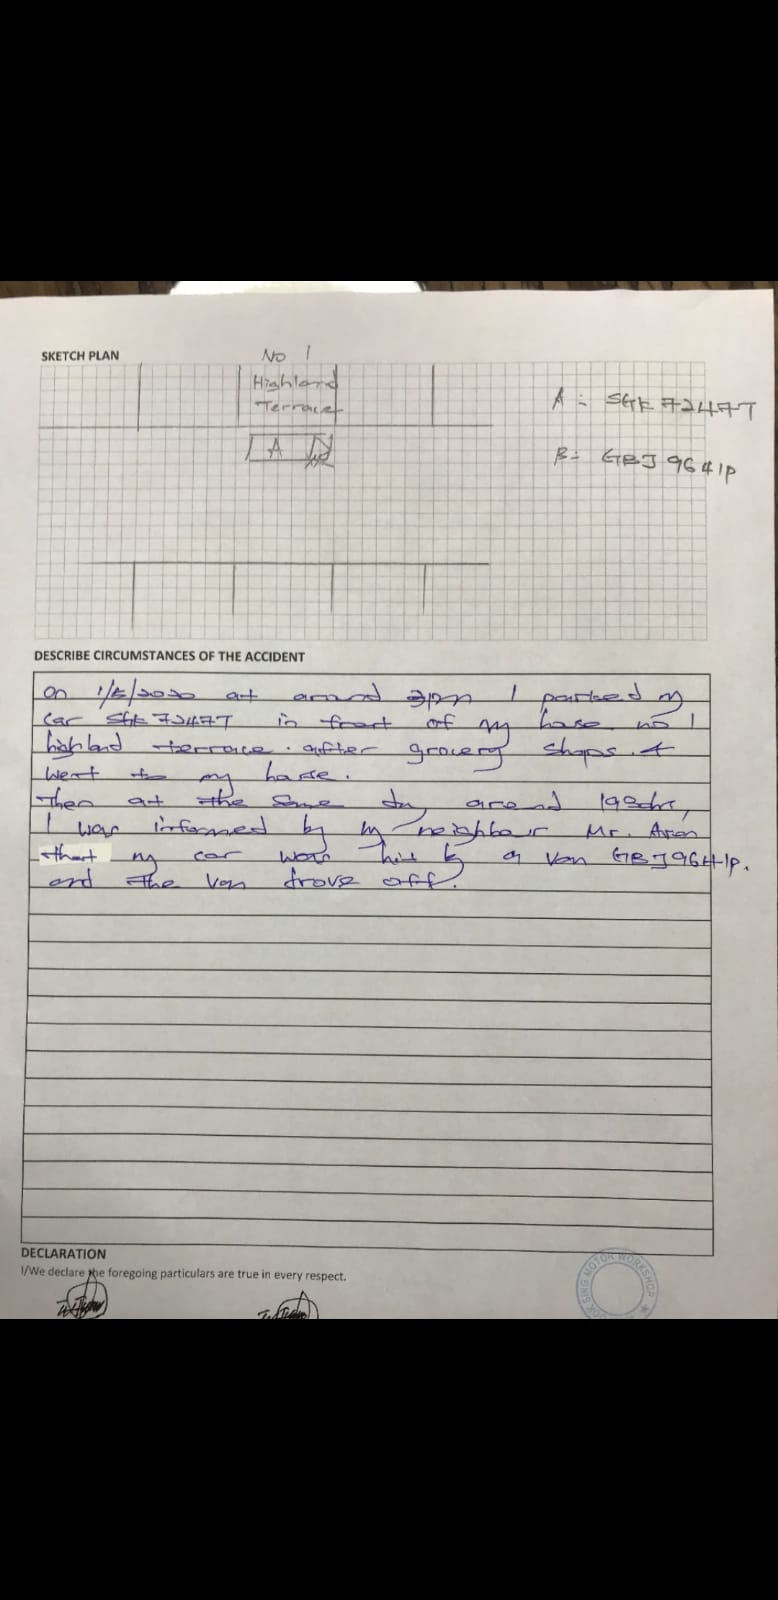 SKETCH PLAN
No 1
Highland
Terrace
A
A: SGK 7247T
B: GBJ 9641P
DESCRIBE CIRCUMSTANCES OF THE ACCIDENT
On 1/5/2020 at around 3pm I parked my
car SGK 7247T in front of my house no 1
highland terrace. after grocery shops. &
went to my house.
Then at the same day around 1930hrs,
I was informed by my neighbour Mr. Aron
that my car was hit by a van GBJ9641P.
and the van drove off.
DECLARATION
I/We declare the foregoing particulars are true in every respect.
SING MOTOR WORKSHOP